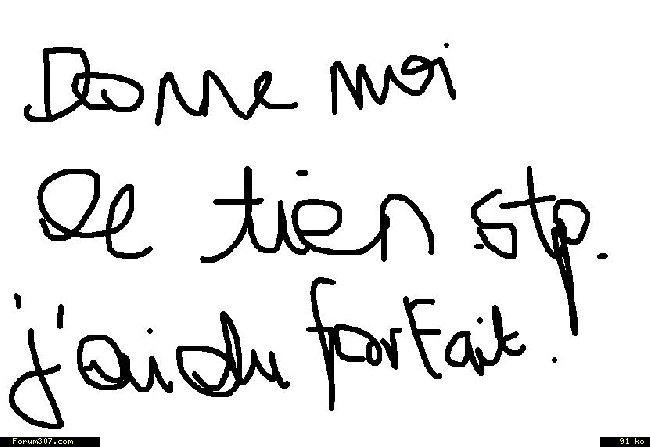 Donne moi
le tien stp.
j'ai du forfait.
Forum307.com
91 ko